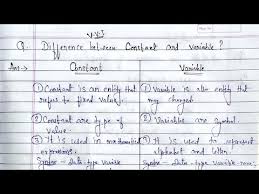 V.V.I
Q. Difference between Constant and Variable?
Ans→ Constant Variable
① Constant is an entity that
refers to fixed value.
② Constant are type of
value.
③ It is used in mathematical
expressions.
Syntax - Data-type
① Variable is also entity that
my changed
② Variables are Symbol
③ It is used to represent
alphabet and letter
Syntax - Data-type Variable-name;